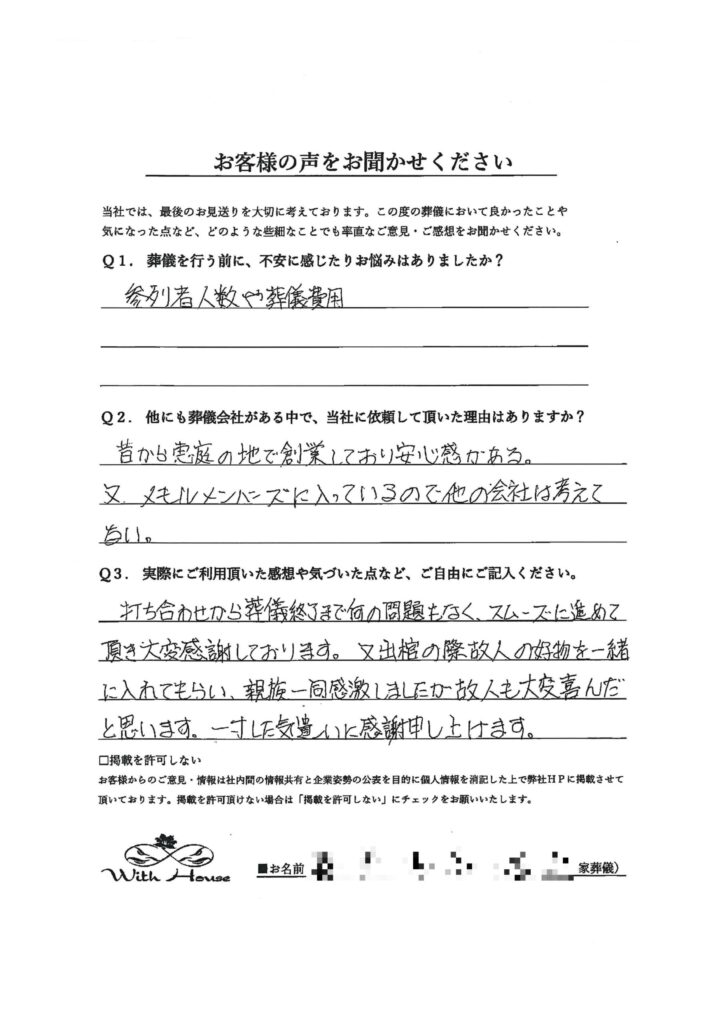 お客様の声をお聞かせください
当社では、最後のお見送りを大切に考えております。この度の葬儀において良かったことや
気になった点など、どのような些細なことでも率直なご意見・ご感想をお聞かせください。
Q1. 葬儀を行う前に、不安に感じたりお悩みはありましたか？
参列者人数や葬儀費用
Q2. 他にも葬儀会社がある中で、当社に依頼して頂いた理由はありますか？
昔から恵庭の地で創業しており安心感がある。
又、メモルメンバーズに入っているので他の会社は考えて
ない。
Q3. 実際にご利用頂いた感想や気づいた点など、ご自由にご記入ください。
打ち合わせから葬儀終了まで何の問題もなく、スムーズに進めて
頂き大変感謝しております。又出棺の際故人の好物を一緒
に入れてもらい、親族一同感激しましたが故人も大変喜んだ
と思います。一寸した気遣いに感謝申し上げます。
□掲載を許可しない
お客様からのご意見・情報は社内間の情報共有と企業姿勢の公表を目的に個人情報を消記した上で弊社HPに掲載させて
頂いております。掲載を許可頂けない場合は「掲載を許可しない」にチェックをお願いいたします。
With House
■お名前 家葬儀）